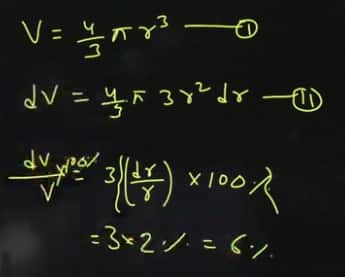 V = 4/3 π r³ — I
dV = 4/3 π 3r² dr — II
dV/V × 100% = 3 {(dr/r) × 100%
= 3 × 2 % = 6 %